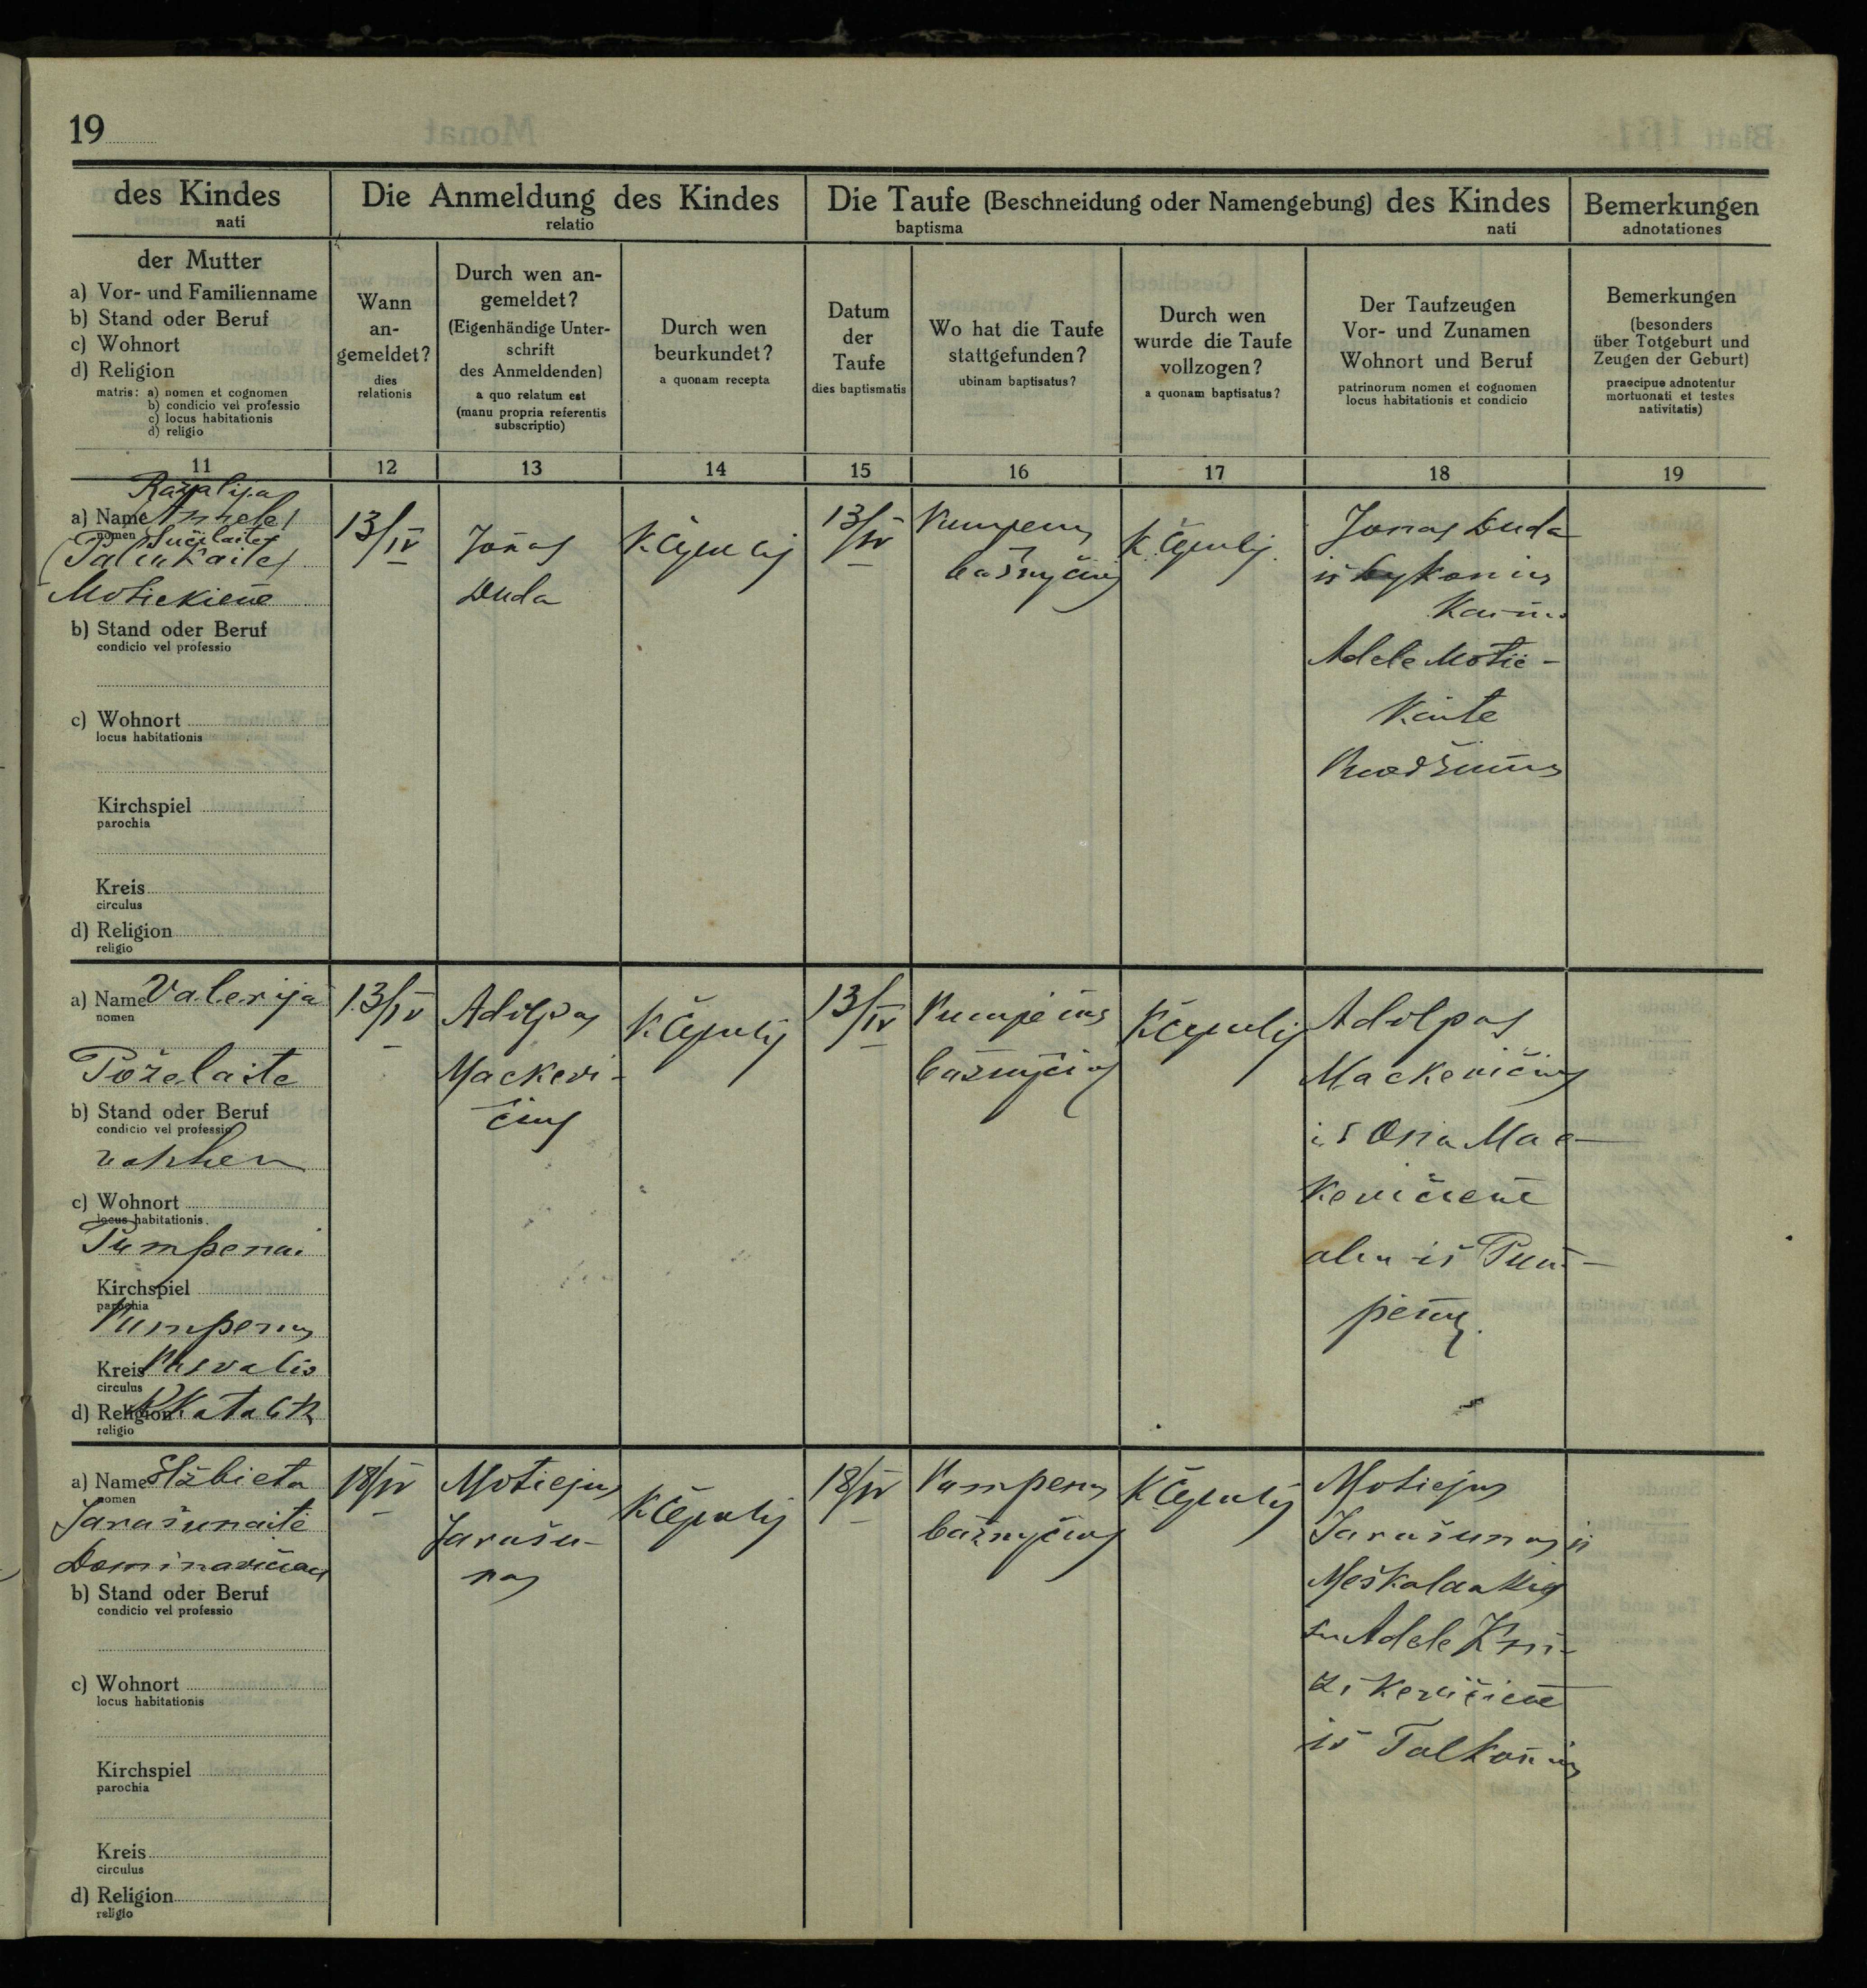 19
des Kindes
nati
Die Anmeldung des Kindes
relatio
Die Taufe (Beschneidung oder Namengebung) des Kindes
baptisma nati
Bemerkungen
adnotationes
der Mutter
a) Vor- und Familienname
b) Stand oder Beruf
c) Wohnort
d) Religion
matris: a) nomen et cognomen
b) condicio vel professio
c) locus habitationis
d) religio
Wann
an-
gemeldet?
dies
relationis
Durch wen an-
gemeldet?
(Eigenhändige Unter-
schrift
des Anmeldenden)
a quo relatum est
(manu propria referentis
subscriptio)
Durch wen
beurkundet?
a quonam recepta
Datum
der
Taufe
dies baptismatis
Wo hat die Taufe
stattgefunden?
ubinam baptisatus?
Durch wen
wurde die Taufe
vollzogen?
a quonam baptisatus?
Der Taufzeugen
Vor- und Zunamen
Wohnort und Beruf
patrinorum nomen et cognomen
locus habitationis et condicio
Bemerkungen
(besonders
über Totgeburt und
Zeugen der Geburt)
praecipue adnotentur
mortuonati et testes
nativitatis)
11 12 13 14 15 16 17 18 19
a) Name
nomen
Motiekienė
b) Stand oder Beruf
condicio vel professio
c) Wohnort
locus habitationis
Kirchspiel
parochia
Kreis
circulus
d) Religion
religio
13/IV
Jonas
Duda
K. Čepulis
13/IV
bažnyčioj
K. Čepulis
Jonas Duda
iš
Adele Motie-
kaite
a) Name Valerija
nomen
Poželaite
b) Stand oder Beruf
condicio vel professio
c) Wohnort
locus habitationis
Pumpenai
Kirchspiel
parochia
Pumpenų
Kreis Pasvalio
circulus
d) Religion R Katalik
religio
13/IV
Adolpas
Mackevi-
čius
K. Čepulis
13/IV
Pumpėnų
bažnyčioj
K Čepulis
Adolpas
Mackevičius
ir Ona Mac-
kevičienė
abu iš Pum-
pėnų.
a) Name Elžbieta
nomen
Jarašunaitė
b) Stand oder Beruf
condicio vel professio
c) Wohnort
locus habitationis
Kirchspiel
parochia
Kreis
circulus
d) Religion
religio
18/IV
Motiejus
Jarašu-
nas
K Čepulis
18/IV
Pumpenų
bažnyčioj
K Čepulis
Motiejus
Jarašunas iš
su Adele
iš Talkonių